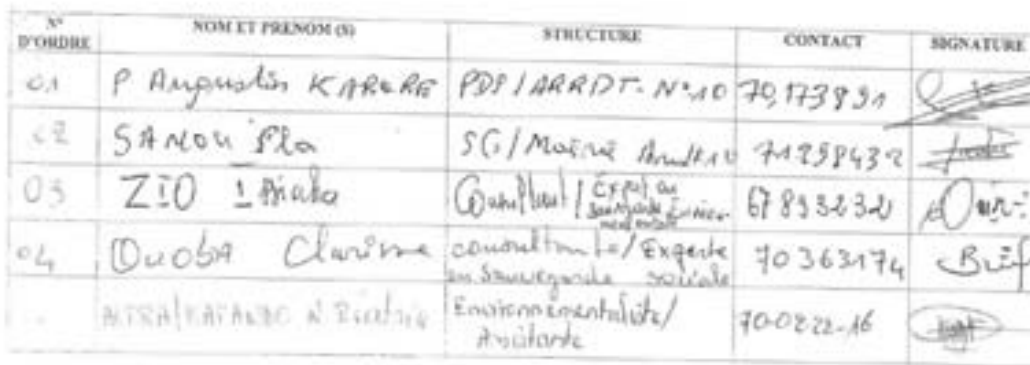 N° D'ORDRE NOM ET PRENOM (S) STRUCTURE CONTACT SIGNATURE
01 P Augustin KABORE PDS/ARRDT. N°10 70,173891
02 SANOU Pla SG/Mairie 71258432
03 ZIO Consultant/Expert en Sauvegarde Environnementale 67893232
04 OuobA Clarisse consultante/Experte en Sauvegarde sociale 70363174
Environnementaliste/
Assistante 70-0222-16